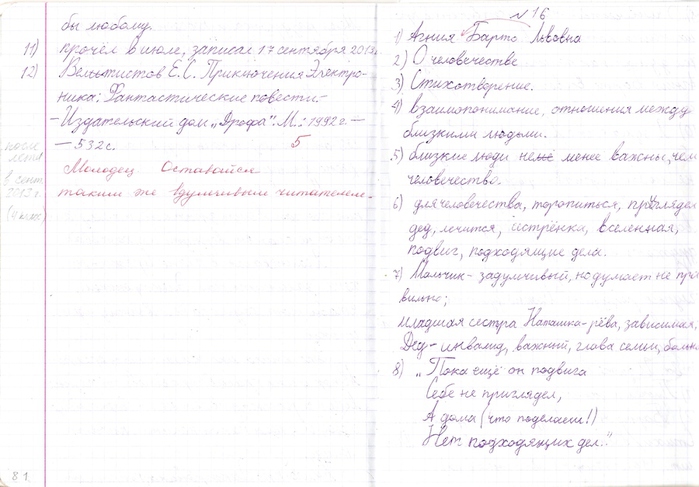 бы любому.
11) прочёл в июле, записал 17 сентября 2013.
12) Вельтистов Е.С. Приключения Электро-
ника: Фантастические повести.-
- Издательский дом „Дрофа". М.: 1992 г. -
- 532 с.
5
Молодец Оставайся
таким же вдумчивым читателем.
после
лета
в сент.
2013 г.
(4 класс)
81.
№16
1) Агния Барто Львовна
2) О человечестве
3) Стихотворение.
4) взаимопонимание, отношения между
близкими людьми.
5) близкие люди не менее важны, чем
человечество.
6) для человечества, торопиться, приглядел
дед, лечится, сестрёнка, вселенная,
подвиг, подходящие дела.
7) Мальчик - задумчивый, но думает не пра
вильно;
младшая сестра Наташка - рёва, зависимая,
Дед - инвалид, важный, глава семьи,
8) „Пока ещё он подвига
Себе не приглядел,
А дома (что поделаешь!)
Нет подходящих дел."